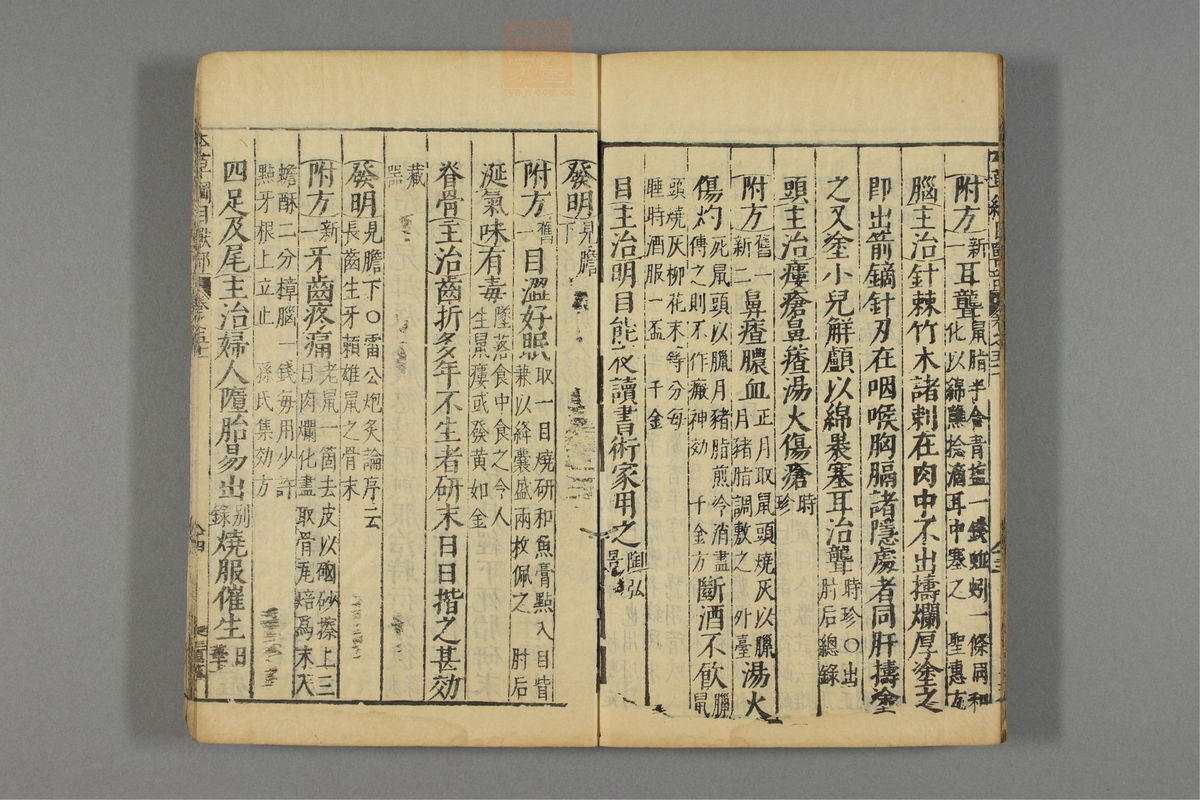 附方新一耳聾鼠脂半合青塩一錢蚯蚓一條同和化以綿蘸捻滴耳中塞之 聖惠方
腦主治針棘竹木諸刺在肉中不出擣爛厚塗之
即出箭鏑針刃在咽喉胸膈諸隱處者同肝擣塗
之又塗小兒解顱以綿裹塞耳治聾時珍〇出肘后總錄
頭主治瘻瘡鼻皶湯火傷瘡時珍
附方舊一新二鼻皶膿血正月取鼠頭燒灰以臘月豬脂調敷之 外臺湯火
傷灼死鼠頭以臘月豬脂煎令消盡傅之則不作瘢神効 千金方斷酒不飲臘鼠
頭燒灰柳花末等分每睡時酒服一盃 千金
目主治明目能夜讀書術家用之陶弘景
發明見膽下
附方舊一目澀好眠取一目燒研和魚膏點入目眥兼以絳囊盛兩枚佩之 肘后
涎氣味有毒墜落食中食之令人生鼠瘻或發黃如金
脊骨主治齒折多年不生者研末日日揩之甚効
藏器
發明見膽下〇雷公炮炙論序云長齒生牙賴雄鼠之骨末
附方新一牙齒疼痛老鼠一箇去皮以硇砂擦上三日肉爛化盡取骨瓦焙爲末入
蟾酥二分樟腦一錢每用少許點牙根上立止 孫氏集効方
四足及尾主治婦人墮胎易出別錄燒服催生日華